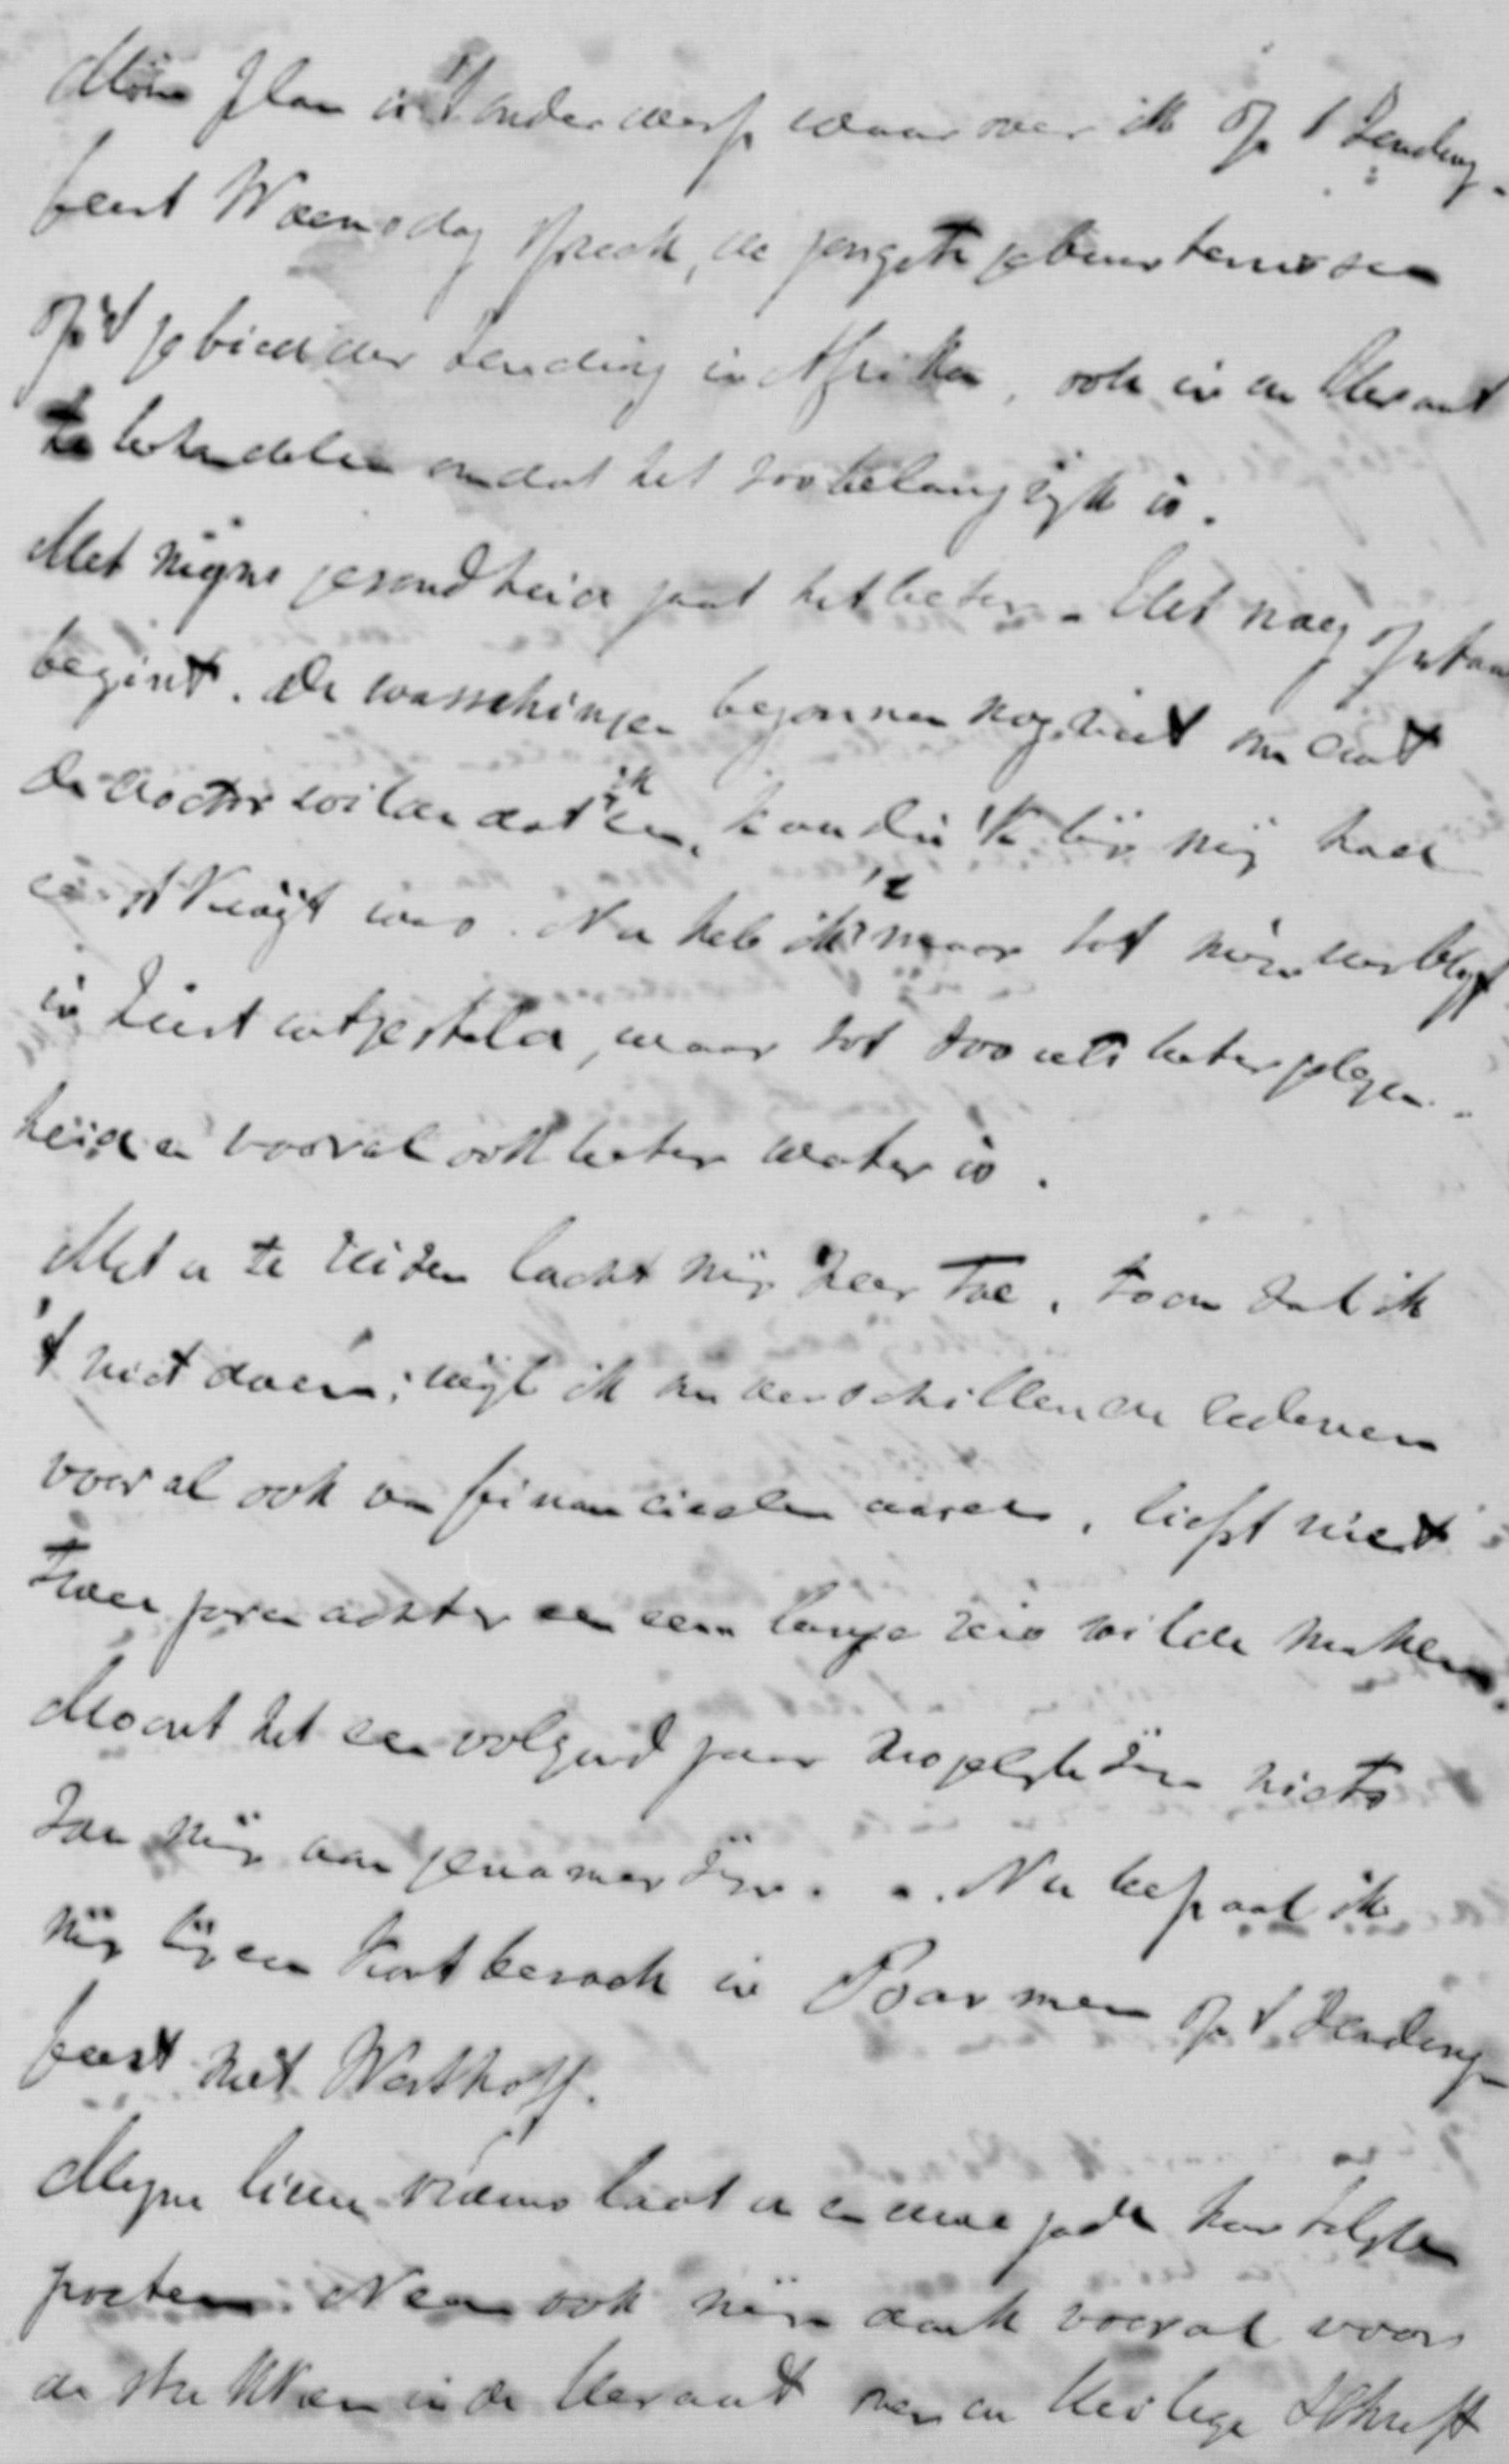 Mijn plan is 't onderwerp waarover ik op 't Zending-
feest Woensdag spreek, de jongste gebeurtenissen
op 't gebied der zending in Afrika, ook in de Heraut
te behandelen omdat het zoo belangrijk is.
Met mijne gezondheid gaat het beter. Het vroeg opstaan
begint. De wasschingen begonnen nog niet omdat
de doctor wilde dat ik een, kou die 'k bij mij had
eerst kwijt was. Nu heb ik 't maar tot mijn verblijf
in Zeist uitgesteld, waar tot zoo iets beter gelegen-
heid en vooral ook beter water is.
Met u te reizen lacht mij zeer toe, toch zal ik
't niet doen; wijl ik om verschillende redenen
vooral ook van financieelen aard, liefst niet
twee jaren achter een een lange reis wilde maken.
Mocht het een volgend jaar mogelijk zijn niets
zou mij aangenamer zijn. Nu bepaal ik
mij bij een kort bezoek in Barmen op 't Zendings-
feest met Westhoff.
Mijne lieve vrouw laat u en uwe gade hartelijk
groeten. Neem ook mijn dank vooral voor
de stukken in de Heraut over de Heilige Schrift